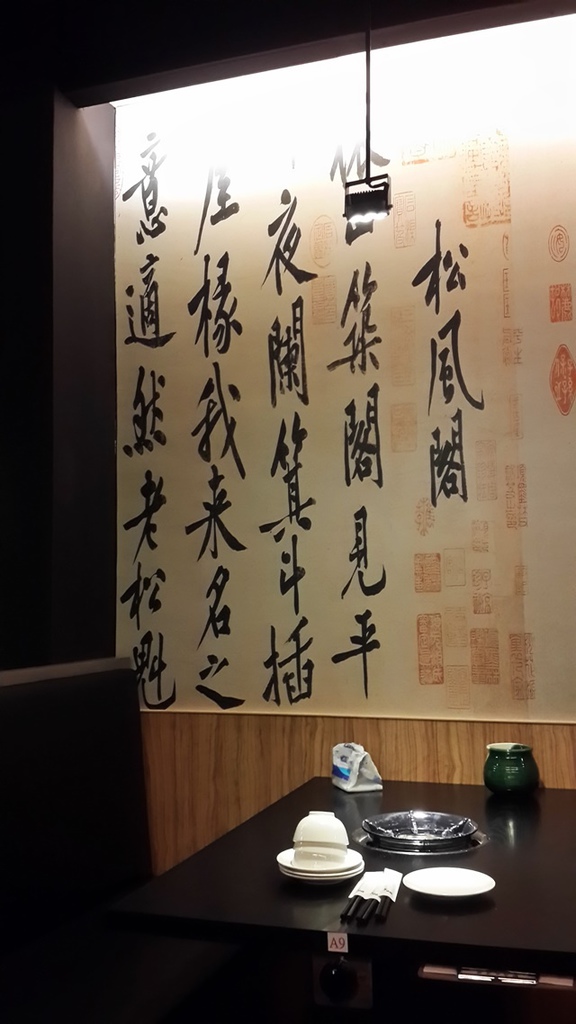 松風閣
山築閣見平
夜闌箕斗插
屋椽我来名之
意適然老松魁
A9